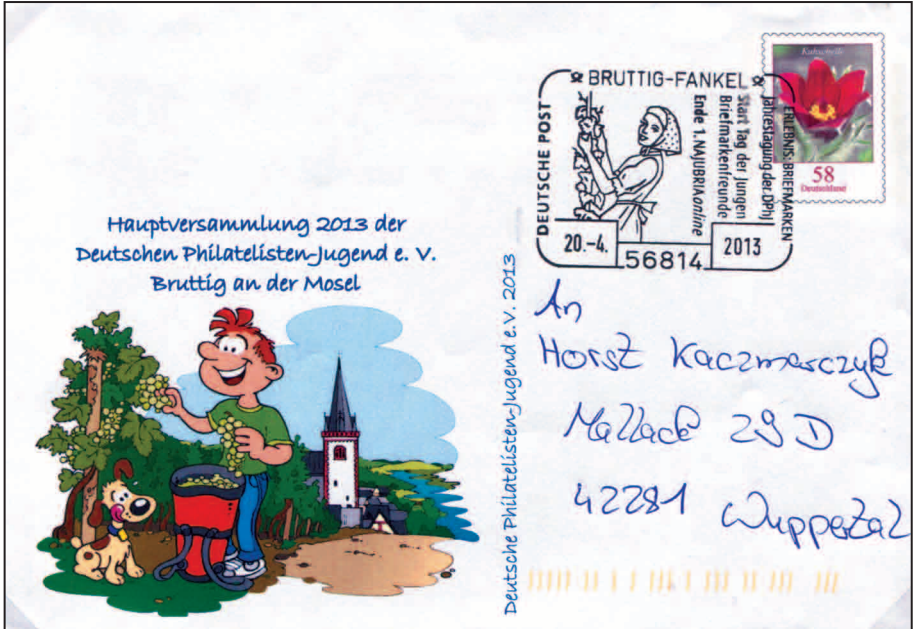 Hauptversammlung 2013 der
Deutschen Philatelisten-Jugend e. V.
Bruttig an der Mosel
Deutsche Philatelisten-Jugend e.V. 2013
BRUTTIG-FANKEL
DEUTSCHE POST
ERLEBNIS: BRIEFMARKEN
Jahrestagung der DPhJ
Start Tag der Jungen
Briefmarkenfreunde
Ende 1. NAJUBRIAonline
20.-4.
2013
56814
Kuhschelle
58
Deutschland
An
Horst Kaczmarczyk
Mallack 29 D
42281 Wuppertal